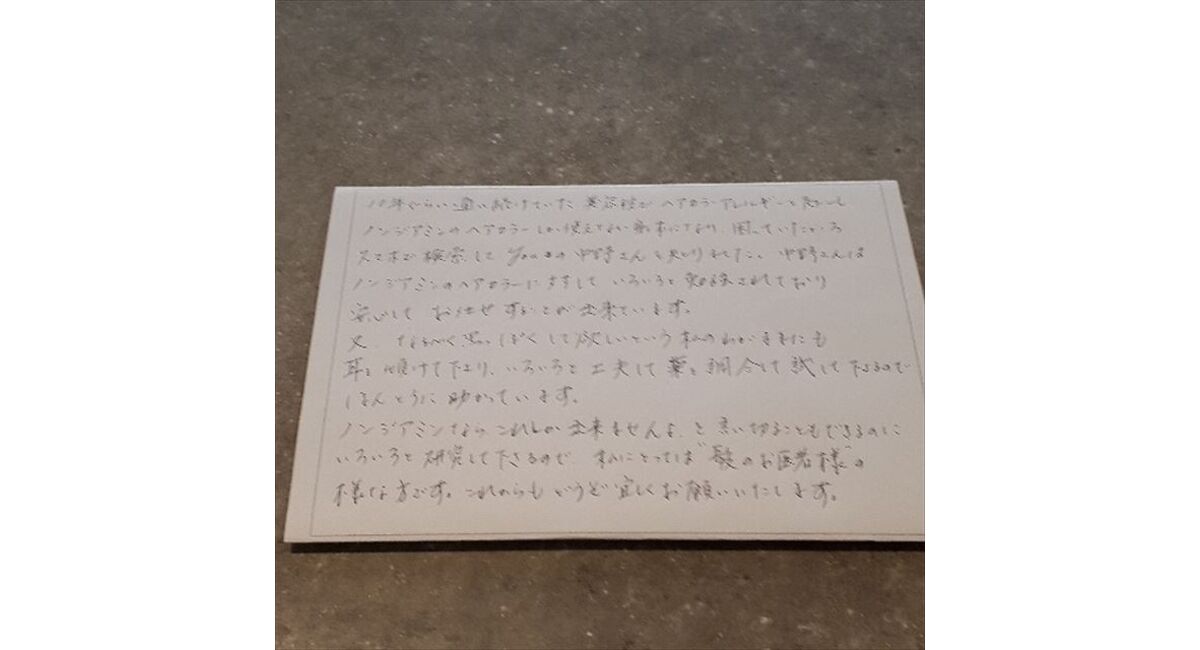 10年ぐらい通い続けていた美容院でヘアカラーアレルギーと
ノンジアミンのヘアカラーしか使えない になり、困っていたころ
スマホで検索して Youの中野さんを知りました。中野さんは
ノンジアミンのヘアカラーに対して いろいろと勉強されており
安心して お任せすることが出来ています。
又、なるべく黒っぽくして欲しいという私のわがままにも
耳を傾けて下さり、いろいろと工夫して薬を調合して試して下さるので
ほんとうに助かっています。
ノンジアミンなら、これしか出来ませんよ、と言い切ることもできるのに
いろいろと研究して下さるので、私にとっては"髪のお医者様"の
様な方です。これからもどうぞ宜しくお願いいたします。